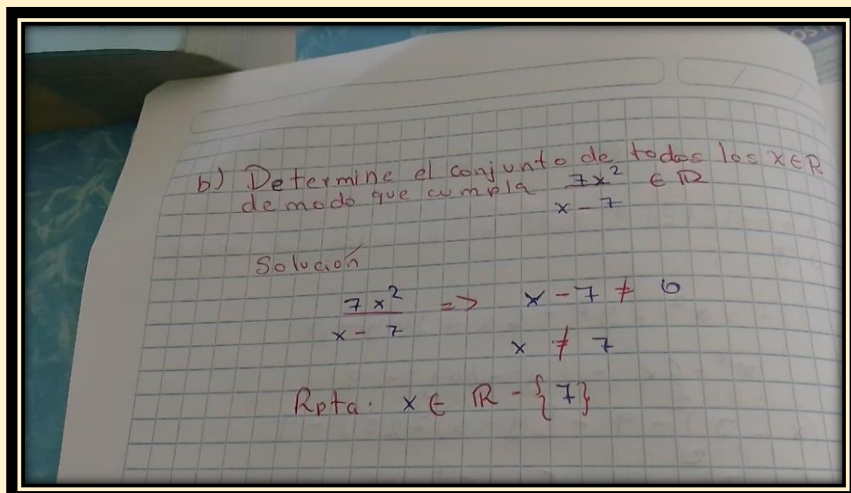 b) Determine el conjunto de todos los x∈R
de modo que cumpla 7x²/x-7 ∈ R
Solución
7x²/x-7 => x-7 ≠ 0
x ≠ 7
Rpta. x ∈ R - {7}